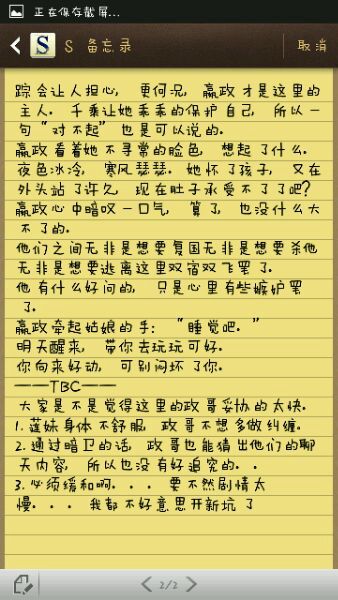 正在保存截屏...
S S 备忘录 取消
踪会让人担心, 更何况, 嬴政才是这里的
主人. 千乘让她乖乖的保护自己, 所以一
句“对不起”也是可以说的.
嬴政看着她不寻常的脸色, 想起了什么.
夜色冰冷, 寒风瑟瑟. 她怀了孩子, 又在
外头站了许久, 现在肚子承受不了了吧?
嬴政心中暗叹一口气, 算了, 也没什么大
不了的.
他们之间无非是想要复国无非是想要杀他
无非是想要逃离这里双宿双飞罢了.
他有什么好问的, 只是心里有些嫉妒罢
了.
嬴政牵起姑娘的手: “睡觉吧. ”
明天醒来, 带你去玩玩可好.
你向来好动, 可别闷坏了你.
——TBC——
大家是不是觉得这里的政哥妥协的太快.
1. 莲妹身体不舒服, 政哥不想多做纠缠.
2. 通过暗卫的话, 政哥也能猜出他们的聊
天内容, 所以也没有好追究的. .
3. 必须缓和啊. . . 要不然剧情太
慢. . . 我都不好意思开新坑了
2/2